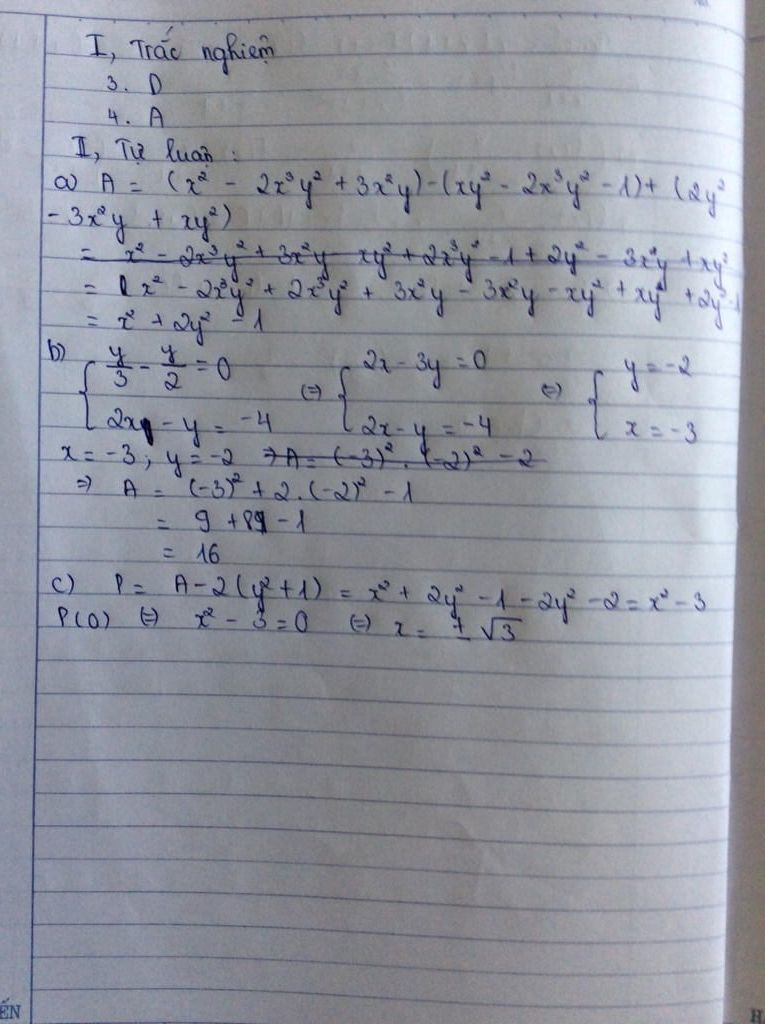 I, Trắc nghiệm
3. D
4. A
II, Tự luận :
a) A = (x² - 2x³y² + 3x²y) - (xy² - 2x³y² - 1) + (2y²
- 3x²y + xy²)
= x² - 2x³y² + 3x²y - xy² + 2x³y² - 1 + 2y² - 3x²y + xy²
= x² - 2x³y² + 2x³y² + 3x²y - 3x²y - xy² + xy² + 2y² - 1
= x² + 2y² - 1
b) { y/3 - y/2 = 0 (=) { 2x - 3y = 0 (=) { y = -2
2x - y = -4 2x - y = -4 x = -3
x = -3 ; y = -2 => A = (-3)² . (-2)² - 2
=> A = (-3)² + 2.(-2)² - 1
= 9 + 8 - 1
= 16
c) P = A - 2(y² + 1) = x² + 2y² - 1 - 2y² - 2 = x² - 3
P(0) (=) x² - 3 = 0 (=) x = ± √3
ẾN
H